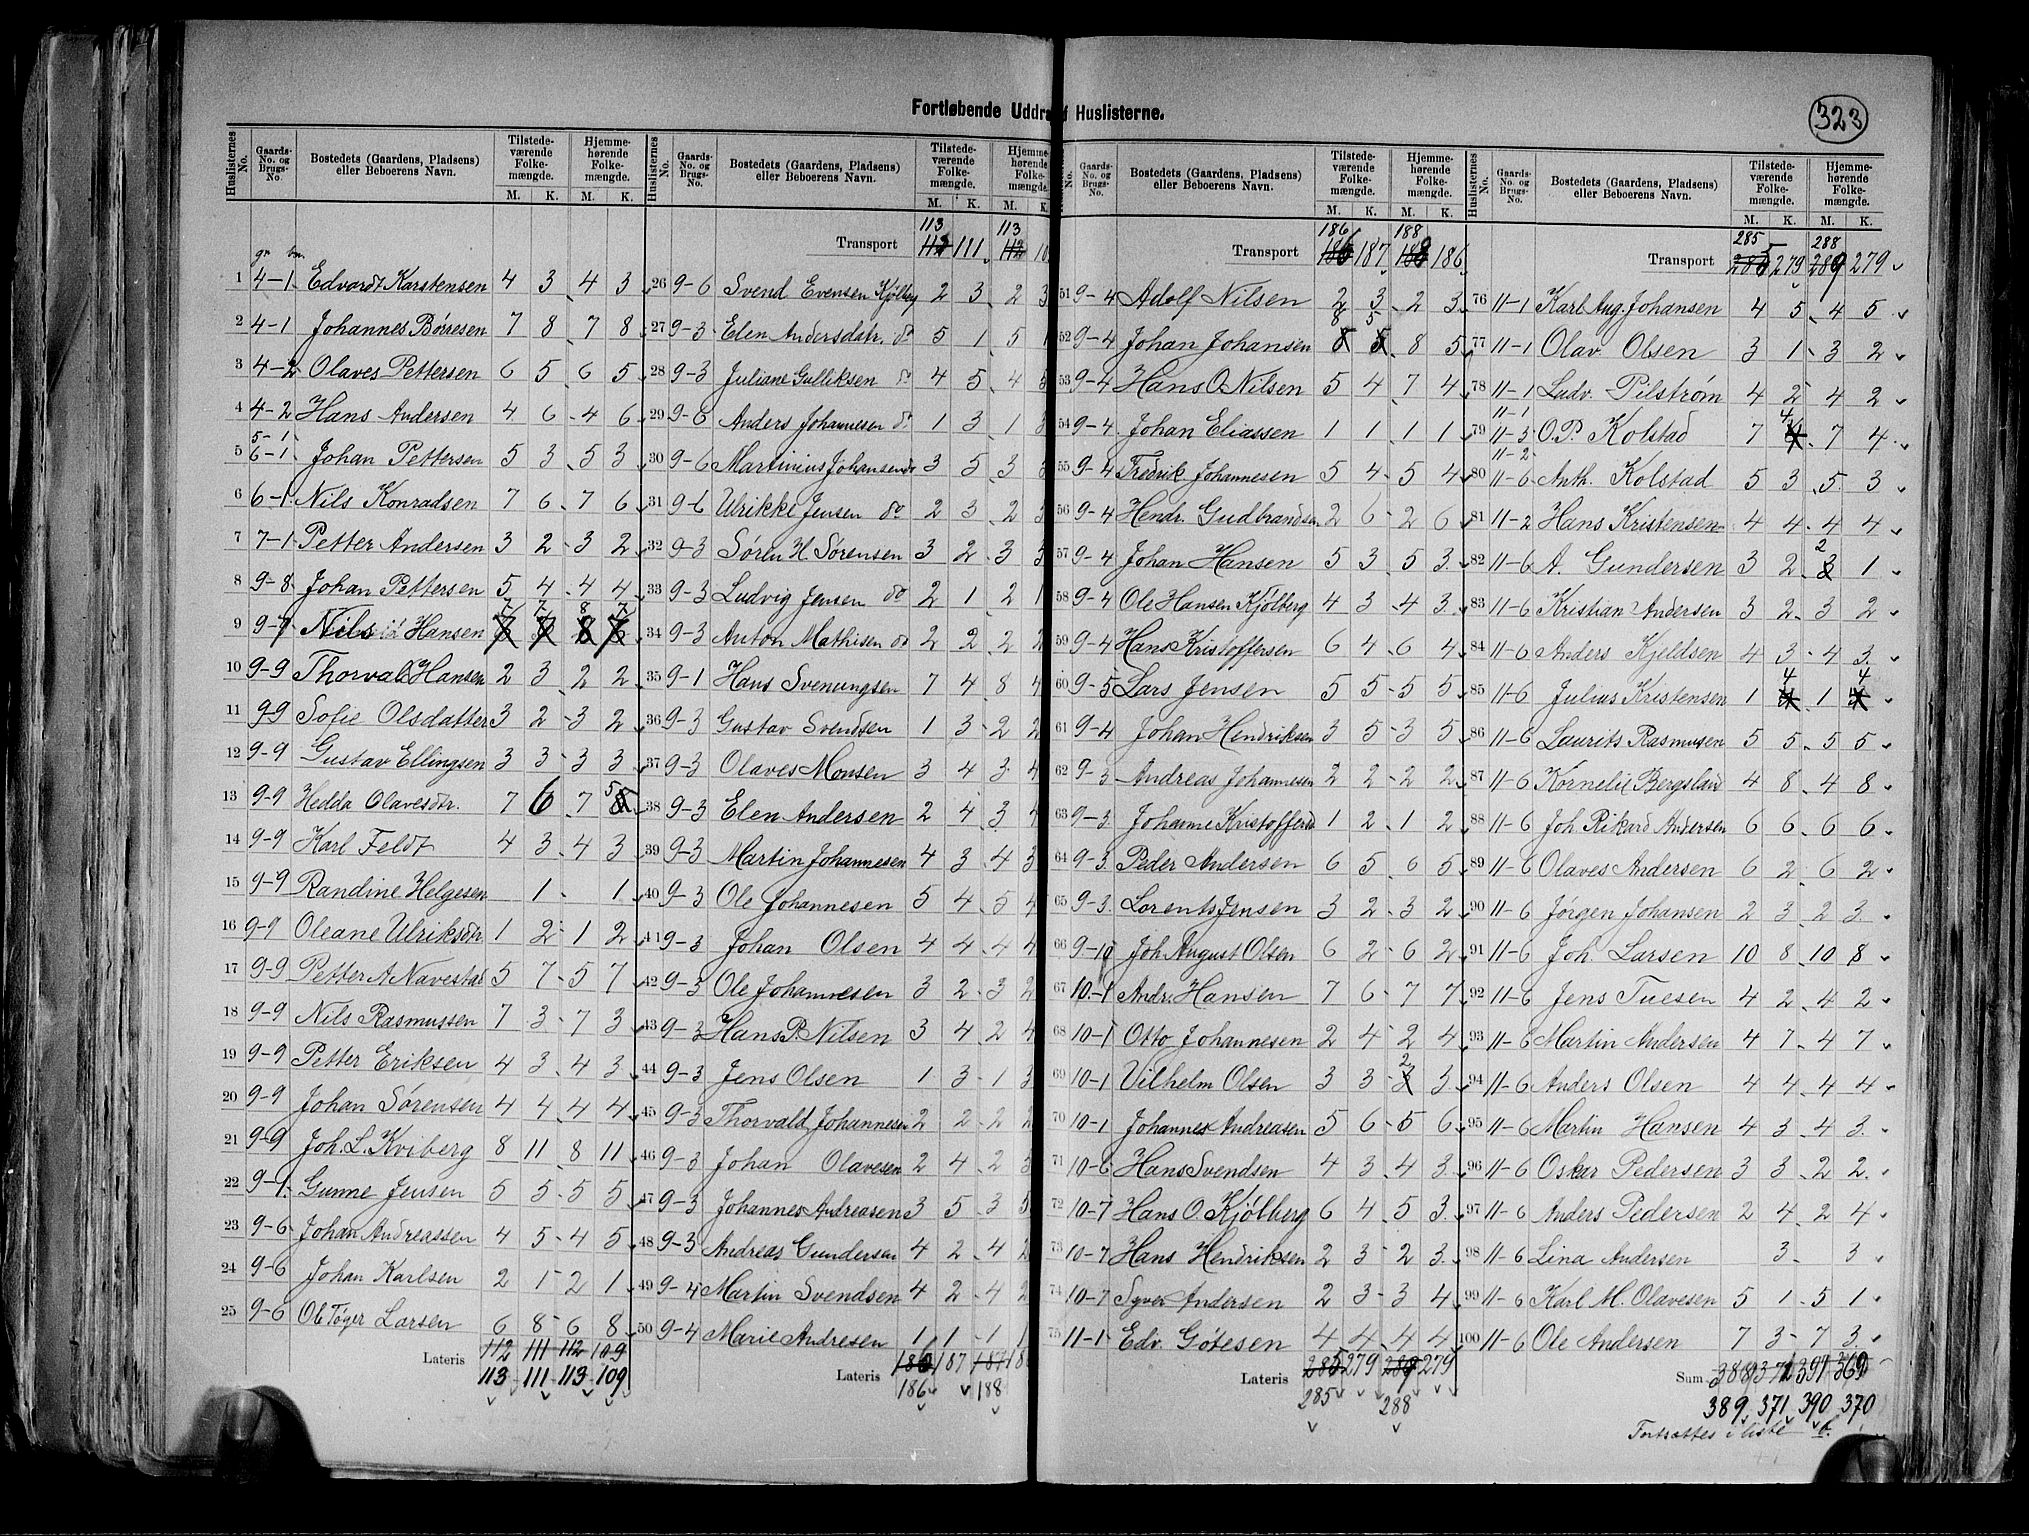 Fortløbende Uddra f Huslisterne.
323
Huslisternes No. Gaards-No. og Brugs-No. Bostedets (Gaardens, Pladsens) eller Beboerens Navn. Tilstedeværende Folkemængde. M. K. Hjemmehørende Folkemængde. M. K.
1 4-1 Edvardt Karstensen 4 3 4 3
2 4-1 Johannes Børresen 7 8 7 8
3 4-2 Olaves Pettersen 6 5 6 5
4 4-2 Hans Andersen 4 6 4 6
5 5-1 6-1 Johan Pettersen 5 3 5 3
6 6-1 Nils Konradsen 7 6 7 6
7 7-1 Petter Andersen 3 2 3 2
8 9-8 Johan Pettersen 5 4 4 4
9 9-7 Nils Hansen 7 7 8 7
10 9-9 Thorval Hansen 2 3 2 2
11 9-9 Sofie Olsdatter 3 2 3 2
12 9-9 Gustav Ellingsen 3 3 3 3
13 9-9 Hedda Olavesdtr. 7 6 7 5
14 9-9 Karl Feldt 4 3 4 3
15 9-9 Randine Helgesen 1 1
16 9-9 Oleane Ulriksdtr 1 2 1 2
17 9-9 Petter A Navestad 5 7 5 7
18 9-9 Nils Rasmussen 7 3 7 3
19 9-9 Petter Eriksen 4 3 4 3
20 9-9 Johan Sørensen 4 4 4 4
21 9-9 Joh. L. Kviberg 8 11 8 11
22 9-1 Gunne Jensen 5 5 5 5
23 9-6 Johan Andreassen 4 5 4 5
24 9-6 Johan Karlsen 2 1 2 1
25 9-6 Ole Tøger Larsen 6 8 6 8
Lateris 112 111 112 109
113 111 113 109
Transport 113 111 113
26 9-6 Svend Evensen Kjølberg 2 3 2 3
27 9-3 Elen Andersdatr. do 5 1 5 1
28 9-3 Juliane Gulliksen do 4 5 4 5
29 9-6 Anders Johannesen do 1 3 1 3
30 9-6 Martinius Johansen do 3 5 3
31 9-6 Ulrikke Jensen do 2 3 2 3
32 9-3 Søren H. Sørensen 3 2 3 3
33 9-3 Ludvig Jensen do 2 1 2 1
34 9-3 Anton Mathisen do 2 2 2 2
35 9-1 Hans Svenungsen 7 4 8 4
36 9-3 Gustav Svendsen 1 3 2 2
37 9-3 Olaves Monsen 3 4 3 4
38 9-3 Elen Andersen 2 4 3 4
39 9-3 Martin Johannesen 4 3 4 3
40 9-3 Ole Johannesen 5 4 5 4
41 9-3 Johan Olsen 4 4 4 4
42 9-3 Ole Johannesen 3 2 3 2
43 9-3 Hans P. Nilsen 3 4 2 4
44 9-3 Jens Olsen 1 3 1 3
45 9-3 Thorvald Johannesen 2 2 2 2
46 9-3 Johan Olavesen 2 4 2 3
47 9-3 Johannes Andreasen 3 5 3 5
48 9-3 Andreas Gundersen 4 2 4 2
49 9-4 Martin Svendsen 4 2 4 2
50 9-4 Marie Andresen 1 1 1 1
Lateris 187 187
186 188
Transport 186 187 188 186
51 9-4 Adolf Nilsen 2 3 2 3
52 9-4 Johan Johansen 8 5 8 5
53 9-4 Hans O. Nilsen 5 4 7 4
54 9-4 Johan Eliassen 1 1 1 1
55 9-4 Fredrik Johannesen 5 4 5 4
56 9-4 Hendr. Gudbrandsen 2 6 2 6
57 9-4 Johan Hansen 5 3 5 3
58 9-4 Ole Hansen Kjølberg 4 3 4 3
59 9-4 Hans Kristoffersen 6 4 6 4
60 9-5 Lars Jensen 5 5 5 5
61 9-4 Johan Hendriksen 3 5 3 5
62 9-3 Andreas Johannesen 2 2 2 2
63 9-3 Johanne Kristoffersd 1 2 1 2
64 9-3 Peder Andersen 6 5 6 5
65 9-3 Lorents Jensen 3 2 3 2
66 9-10 Joh. August Olsen 6 2 6 2
67 10-1 Andr. Hansen 7 6 7 7
68 10-1 Otto Johannesen 2 4 2 4
69 10-1 Vilhelm Olsen 3 3 2 3
70 10-1 Johannes Andreasen 5 6 5 6
71 10-6 Hans Svendsen 4 3 4 3
72 10-7 Hans O. Kjølberg 6 4 5 3
73 10-7 Hans Hendriksen 2 3 2 3
74 10-7 Syver Andersen 2 3 3 4
75 11-1 Edv. Gøtesen 4 4 4 4
Lateris 285 279 289 279
285 288
Transport 285 279 288 279
76 11-1 Karl Aug. Johansen 4 5 4 5
77 11-1 Olav Olsen 3 1 3 2
78 11-1 Ludv. Pilstrøm 4 2 4 2
79 11-1 11-3 O. P. Kolstad 7 4 7 4
80 11-2 11-6 Anth. Kolstad 5 3 5 3
81 11-2 Hans Kristensen 4 4 4 4
82 11-6 A. Gundersen 3 2 2 1
83 11-6 Kristian Andersen 3 2 3 2
84 11-6 Anders Kjeldsen 4 3 4 3
85 11-6 Julius Kristensen 1 4 1 4
86 11-6 Laurits Rasmusen 5 5 5 5
87 11-6 Kornelie Bergsland 4 8 4 8
88 11-6 Joh Rikard Andersen 6 6 6 6
89 11-6 Olaves Andersen 6 2 6 2
90 11-6 Jørgen Johansen 2 3 2 3
91 11-6 Joh. Larsen 10 8 10 8
92 11-6 Jens Tuesen 4 2 4 2
93 11-6 Martin Andersen 4 7 4 7
94 11-6 Anders Olsen 4 4 4 4
95 11-6 Martin Hansen 4 3 4 3
96 11-6 Oskar Pedersen 3 3 2 2
97 11-6 Anders Pedersen 2 4 2 4
98 11-6 Lina Andersen 3 3
99 11-6 Karl M. Olavesen 5 1 5 1
100 11-6 Ole Andersen 7 3 7 3
Sum 388 372 391 369
389 371 390 370
Fortsættes i liste b.